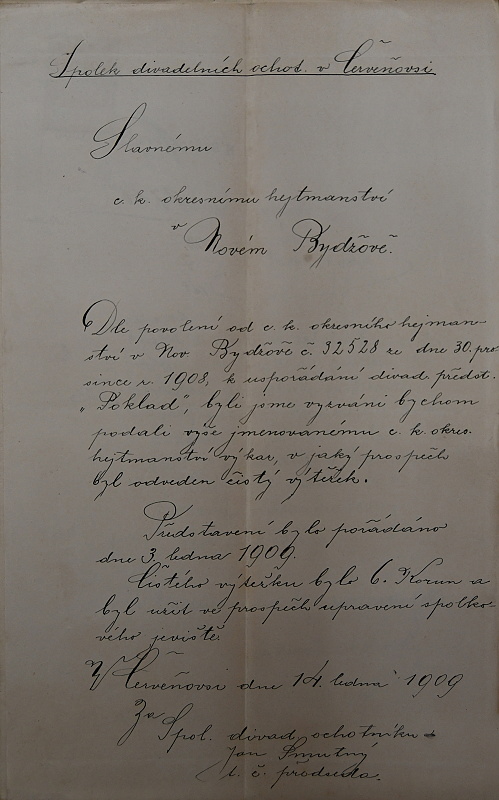 Spolek divadelních ochot. v Červeňovsi
Slavnému
c. k. okresnímu hejtmanství
v
Novém Bydžově.
Dle povolení od c. k. okresního hejman-
ství v Nov. Bydžově č. 32528 ze dne 30. pro
since r. 1908, k uspořádání divad. předst.
„Poklad", byli jsme vyzváni bychom
podali výše jmenovanému c. k. okres.
hejtmanství výkaz, v jaký prospěch
byl odveden čistý výtěžek.
Představení bylo pořádáno
dne 3. ledna 1909.
Čistého výtěžku bylo 6. Korun a
byl užit ve prospěch upravení spolko-
vého jeviště.
V Červeňovsi dne 14. ledna 1909
Za
Spol. divad. ochotníku
Jan Smutný
t. č. předseda.